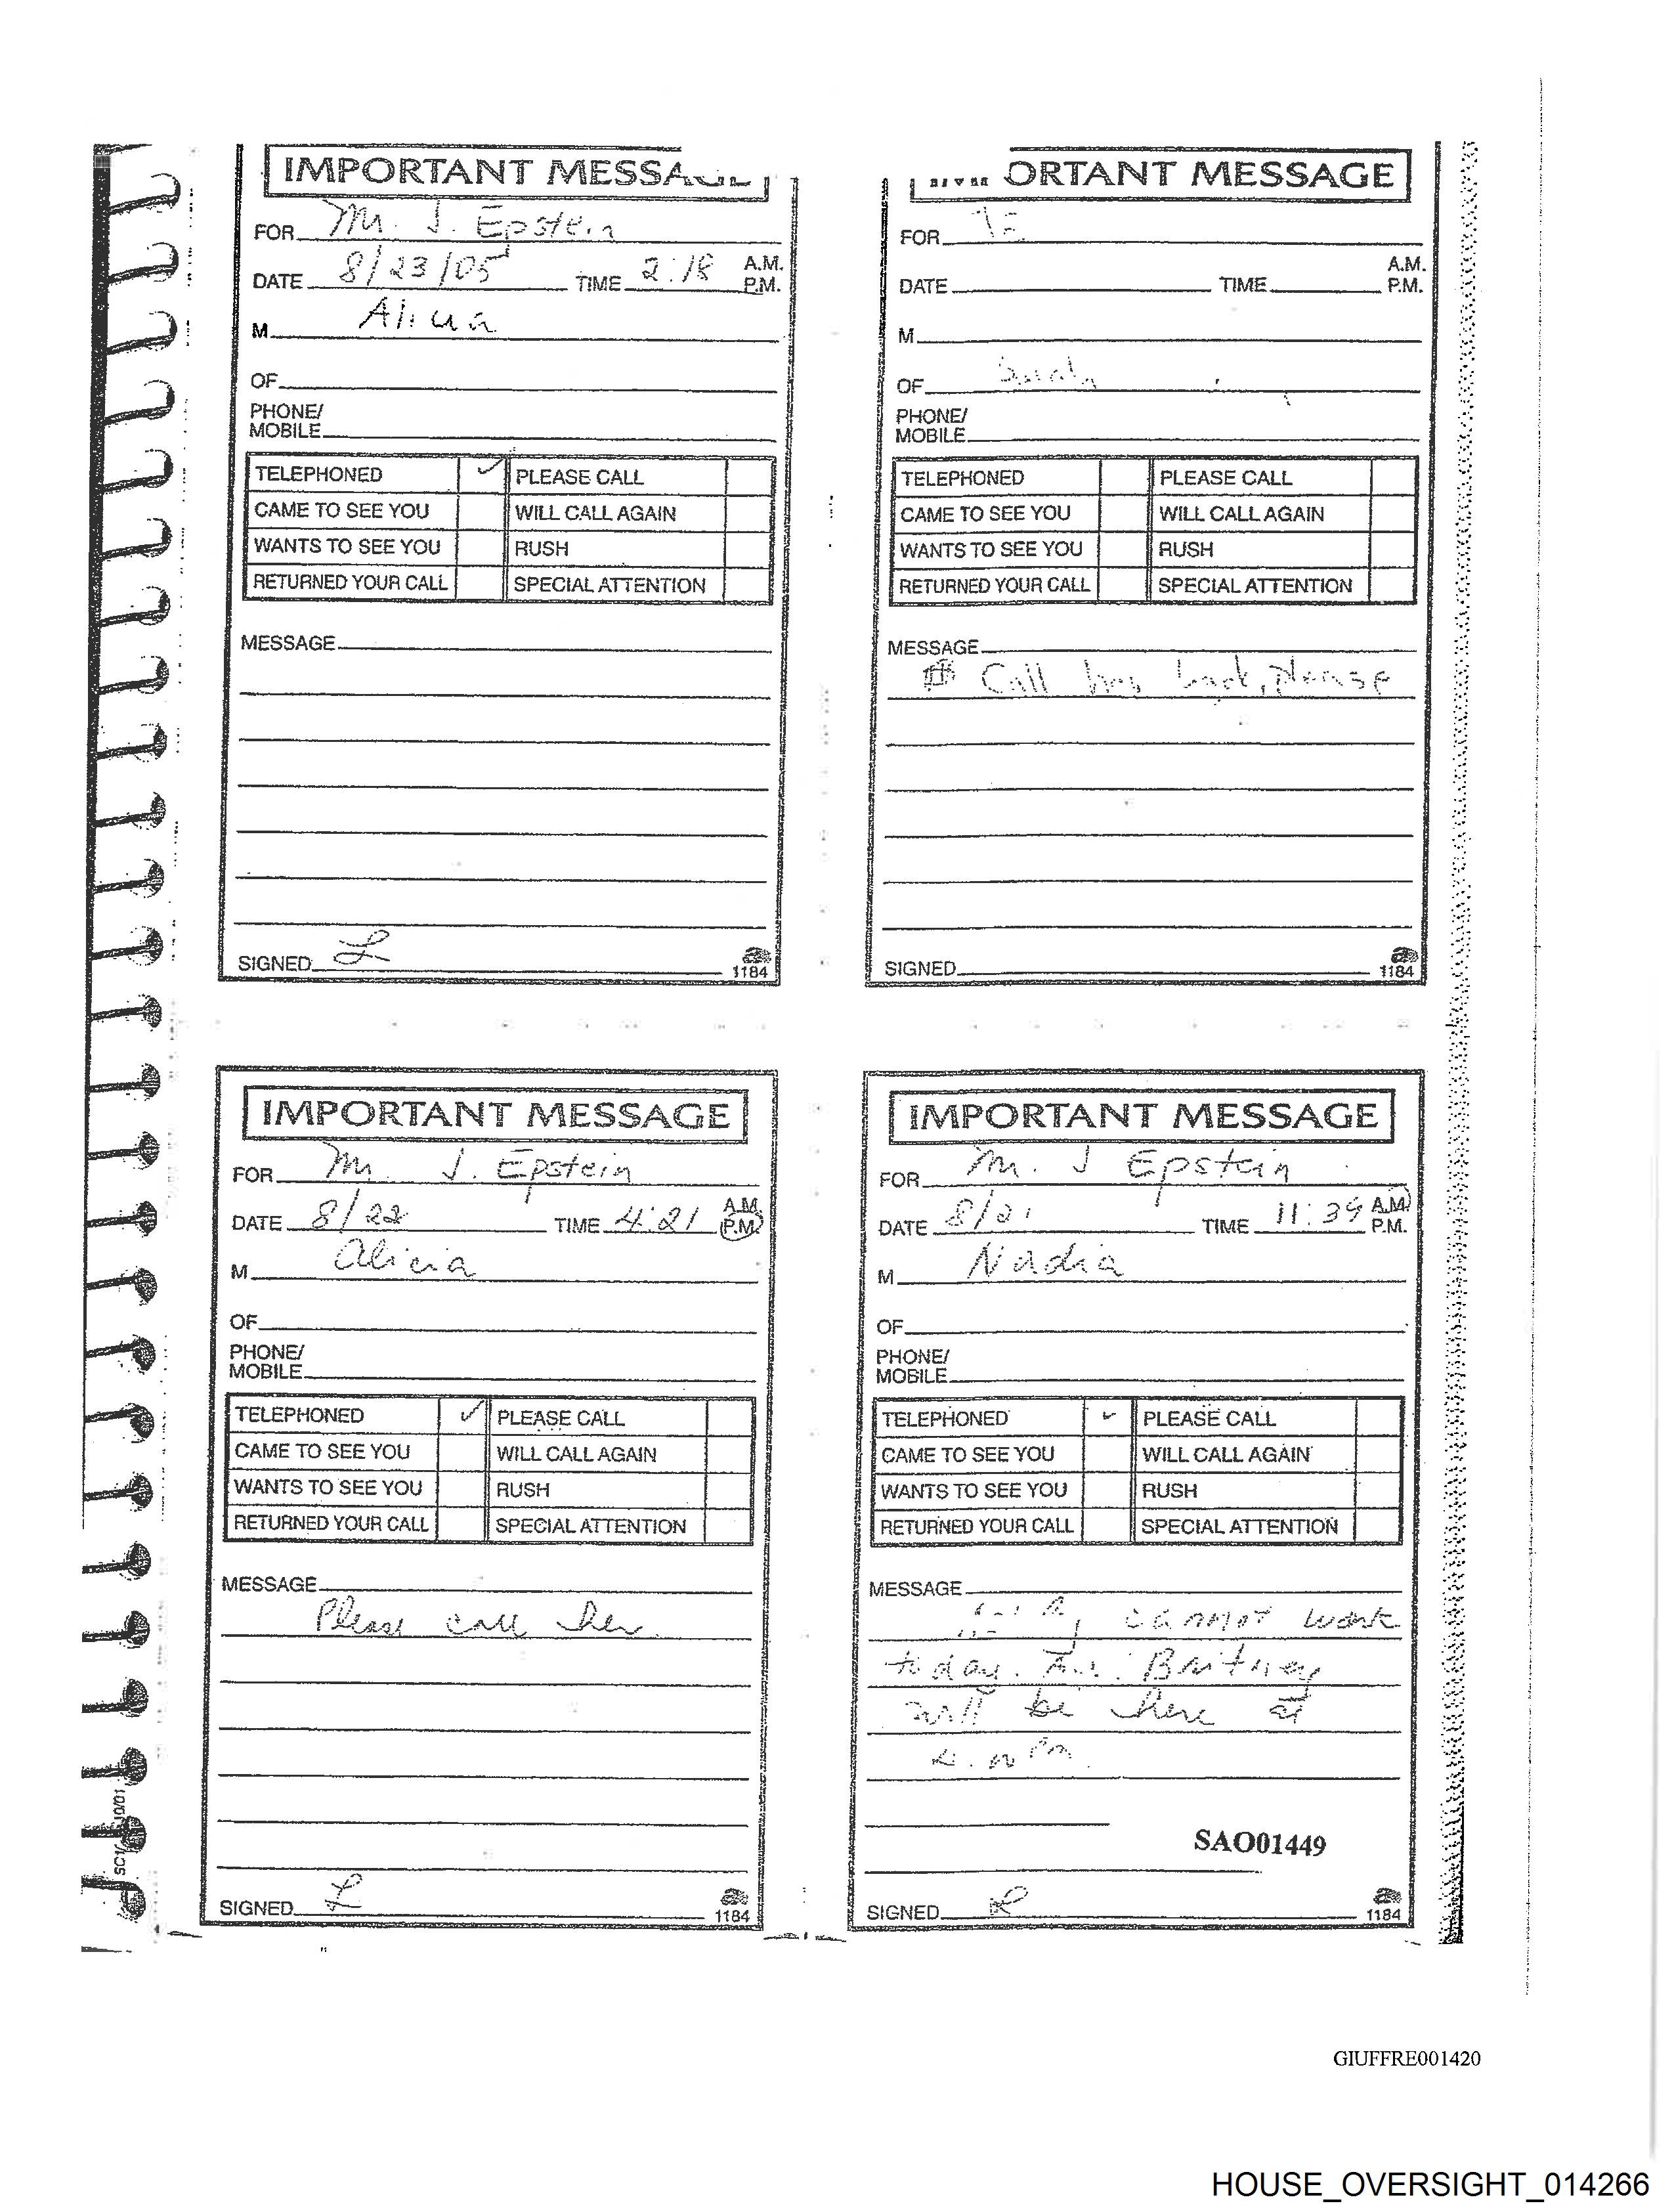 IMPORTANT MESSAGE
FOR Mr. J. Epstein
DATE 8/23/05 TIME 2:18 A.M. P.M.
M Alicia
OF
PHONE/
MOBILE
TELEPHONED ✓ PLEASE CALL
CAME TO SEE YOU WILL CALL AGAIN
WANTS TO SEE YOU RUSH
RETURNED YOUR CALL SPECIAL ATTENTION
MESSAGE
SIGNED L
1184
ORTANT MESSAGE
FOR JE
DATE TIME A.M. P.M.
M
OF Sarah
PHONE/
MOBILE
TELEPHONED PLEASE CALL
CAME TO SEE YOU WILL CALL AGAIN
WANTS TO SEE YOU RUSH
RETURNED YOUR CALL SPECIAL ATTENTION
MESSAGE
Call her back, please
SIGNED
1184
IMPORTANT MESSAGE
FOR Mr. J. Epstein
DATE 8/22 TIME 4:21 A.M. P.M.
M Alicia
OF
PHONE/
MOBILE
TELEPHONED ✓ PLEASE CALL
CAME TO SEE YOU WILL CALL AGAIN
WANTS TO SEE YOU RUSH
RETURNED YOUR CALL SPECIAL ATTENTION
MESSAGE
Please call her
SIGNED L
1184
IMPORTANT MESSAGE
FOR Mr. J Epstein
DATE 8/21 TIME 11:39 A.M. P.M.
M Nadia
OF
PHONE/
MOBILE
TELEPHONED ✓ PLEASE CALL
CAME TO SEE YOU WILL CALL AGAIN
WANTS TO SEE YOU RUSH
RETURNED YOUR CALL SPECIAL ATTENTION
MESSAGE
cannot work
today. Britney
will be here at
pm.
SAO01449
SIGNED L
1184
GIUFFRE001420
HOUSE_OVERSIGHT_014266